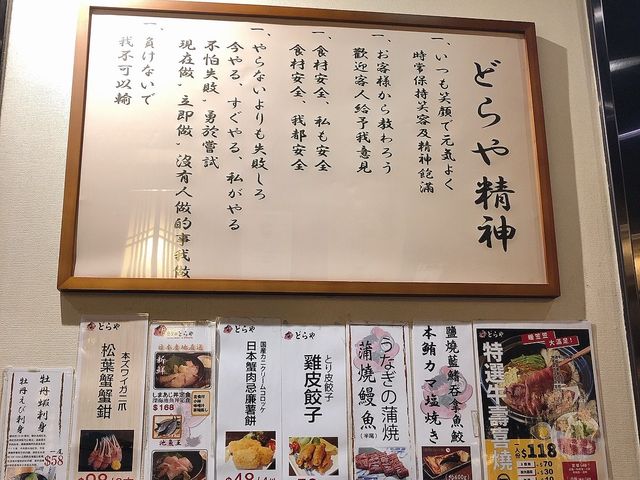 どらや精神
一、いつも笑顔で元気よく
時常保持笑容及精神飽滿
一、お客様から教わろう
歡迎客人給予我意見
一、食材安全、私も安全
食材安全、我都安全
一、やらないよりも失敗しろ
今やる、すぐやる、私がやる
不怕失敗，勇於嘗試
現在做，立即做，沒有人做的事我做
一、負けないで
我不可以輸
牡丹蝦刺身
牡丹えび刺身
$58
どらや
本ズワイガニ爪
松葉蟹蟹鉗
どらや
新鮮
しまあじ丼定食
$168
池魚王
どらや
国産カニクリームコロッケ
日本蟹肉忌廉薯餅
$48
どらや
とり皮餃子
雞皮餃子
うなぎの蒲焼
蒲燒鰻魚
(半尾)
鹽燒藍鰭吞拿魚鮫
本鮪カマ塩焼き
どらや
大滿足!
特選牛壽喜燒
$118
$70
$30